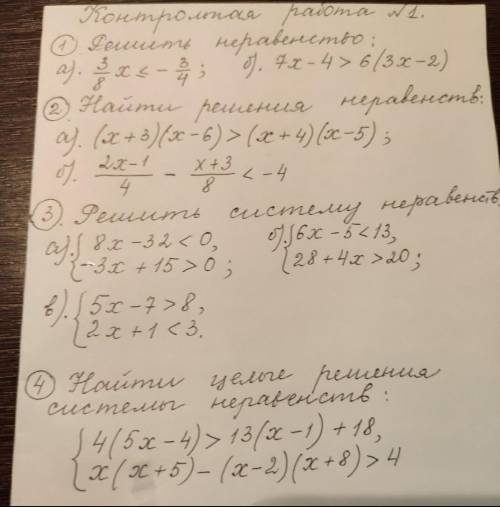 Контрольная работа №1.
① Решить неравенство:
а). 3/8 x ≤ - 3/4; б). 7x-4 > 6(3x-2)
② Найти решения неравенств:
а). (x+3)(x-6) > (x+4)(x-5);
б). (2x-1)/4 - (x+3)/8 < -4
③ Решить систему неравенств
а). { 8x-32 < 0, б). { 6x-5 < 13,
-3x+15 > 0; 28+4x > 20;
в). { 5x-7 > 8,
2x+1 < 3.
④ Найти целые решения
системы неравенств:
{ 4(5x-4) > 13(x-1)+18,
x(x+5)-(x-2)(x+8) > 4